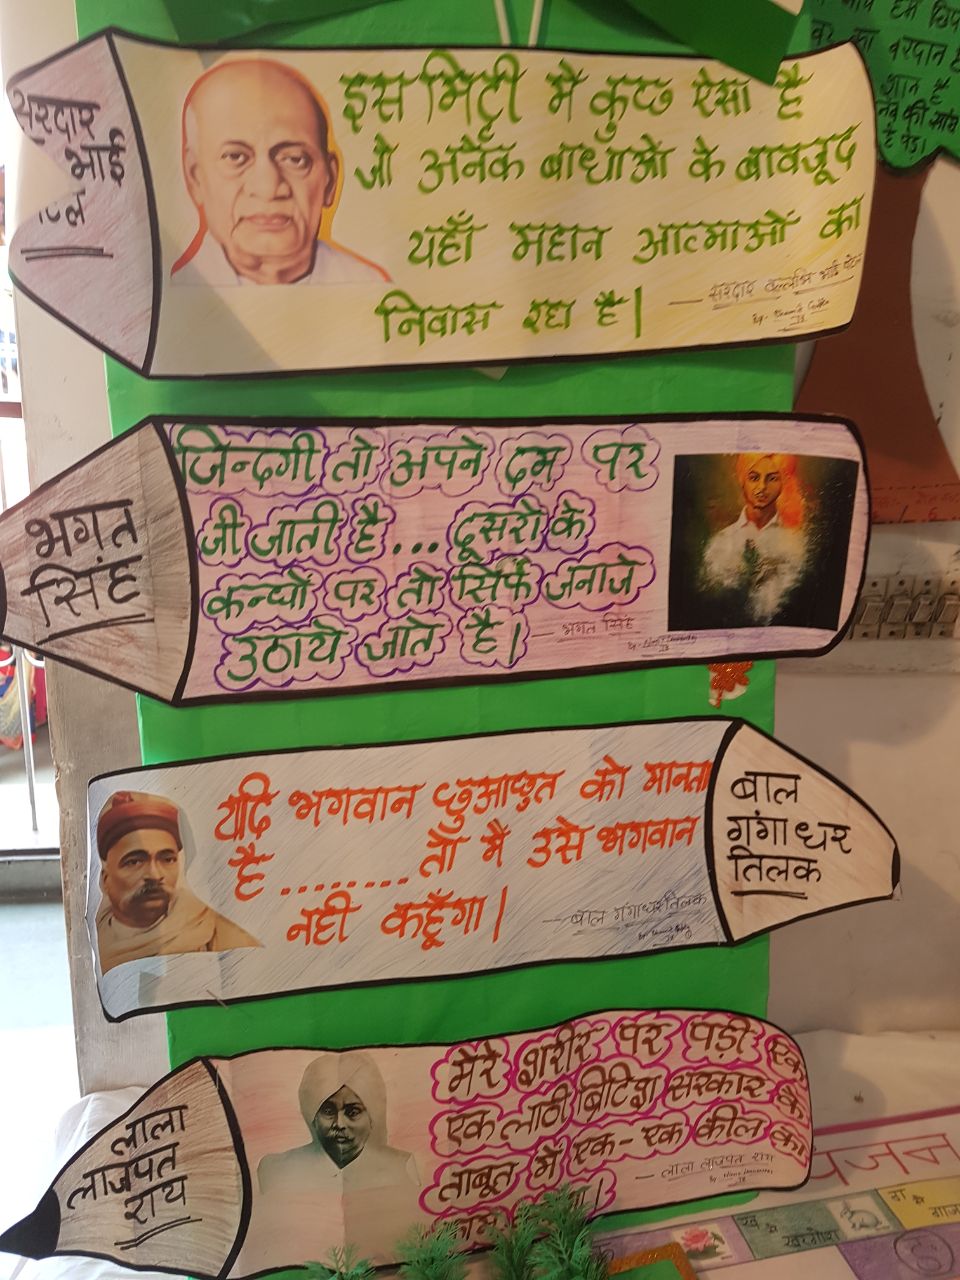 सरदार
भाई
इस मिट्टी में कुछ ऐसा है
जो अनेक बाधाओं के बावजूद
यहाँ महान आत्माओं का
निवास रहा है|
— सरदार वल्लभ भाई पटेल
भगत
सिंह
जिन्दगी तो अपने दम पर
जी जाती है... दूसरो के
कन्धों पर तो सिर्फ जनाजे
उठाये जाते है|
— भगत सिंह
यदि भगवान छुआछुत को मानता
है ........ तो मै उसे भगवान
नही कहूँगा|
— बाल गंगाधर तिलक
बाल
गंगाधर
तिलक
लाला
लाजपत
राय
मेरे शरीर पर पड़ी एक
एक लाठी ब्रिटिश सरकार के
ताबूत में एक-एक कील का
काम
— लाला लाजपत राय